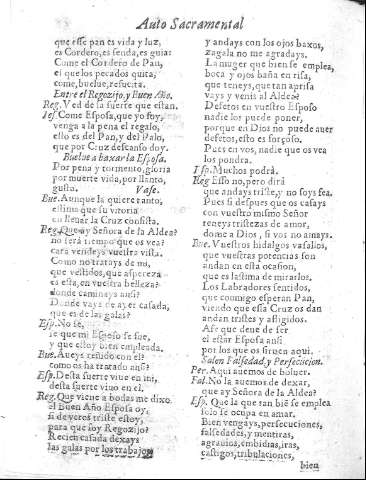 Auto Sacramental
que esse pan es vida y luz,
es Cordero, es senda, es guia:
Come el Cordero de Pan,
el que los pecados quita,
come, buelue, resucita.
Entre el Regozijo, y Buen Año.
Reg. Ved de la suerte que estan.
Ies. Come Esposa, que yo soy,
venga a la pena el regalo,
ello es del Pan, y del Palo,
que por Cruz descanso doy.
Buelue a baxar la Esposa.
Por pena y tormento, gloria
por muerte vida, por llanto,
gusto. Vase.
Bue. Aunque la quiere tanto,
estima que su vitoria
en lleuar la Cruz consista.
Reg. Que y Señora de la Aldea?
no será tiempo que os vea?
cara vendeys vuestra vista.
Como no tratays de mi,
que vestidos, que aspereza
es esta, en vuestra belleza?
donde camineys ansi?
Donde vaya de ayer casada,
que es de las galas?
Esp. No sè,
se que mi Esposo se fue,
y que estoy bien empleada.
Bue. Aueys reñido con el?
como os ha tratado ansi?
Esp. Desta suerte viue en mi,
desta suerte viuo en el.
Reg. Que viene a bodas me dixo
el Buen Año Esposa oy,
si de veros triste estoy,
para que soy Regozijo?
Recien casada dexays
las galas por los trabajos
y andays con los ojos baxos,
zagala no me agradays.
La muger que bien se emplea,
boca y ojos baña en risa,
que teneys, que tan aprisa
vays y venis al Aldea?
Defetos en vuestro Esposo
nadie los puede poner,
porque en Dios no puede auer
defetos, esto es forçoso.
Pues en vos, nadie que os vea
los pondra.
Esp. Muchos podrà.
Reg Esso no, pero dirà
que andays triste, y no soys fea.
Pues si despues que os casays
con vuestro mismo Señor
teneys tristezas de amor,
dome a Dios, si vos no amays.
Bue. Vuestros hidalgos vasallos,
que vuestras potencias son
andan en esta ocasion,
que es lastima de mirarlos.
Los Labradores sentidos,
que conmigo esperan Pan,
viendo que essa Cruz os dan
andan tristes y afligidos.
Assi que deue de ser
el estàr Esposa ansi
por los que os siruen aqui.
Salen Falsedad, y Perfeccion.
Per. Aqui auemos de boluer.
Fal. No la auemos de dexar,
que ay Señora de la Aldea?
Esp. Que la que tan biē se emplea
solo se ocupa en amar.
Bien vengays, persecuciones,
falsedades, y mentiras,
agrauios, embidias, iras,
castigos, tribulaciones,
bien